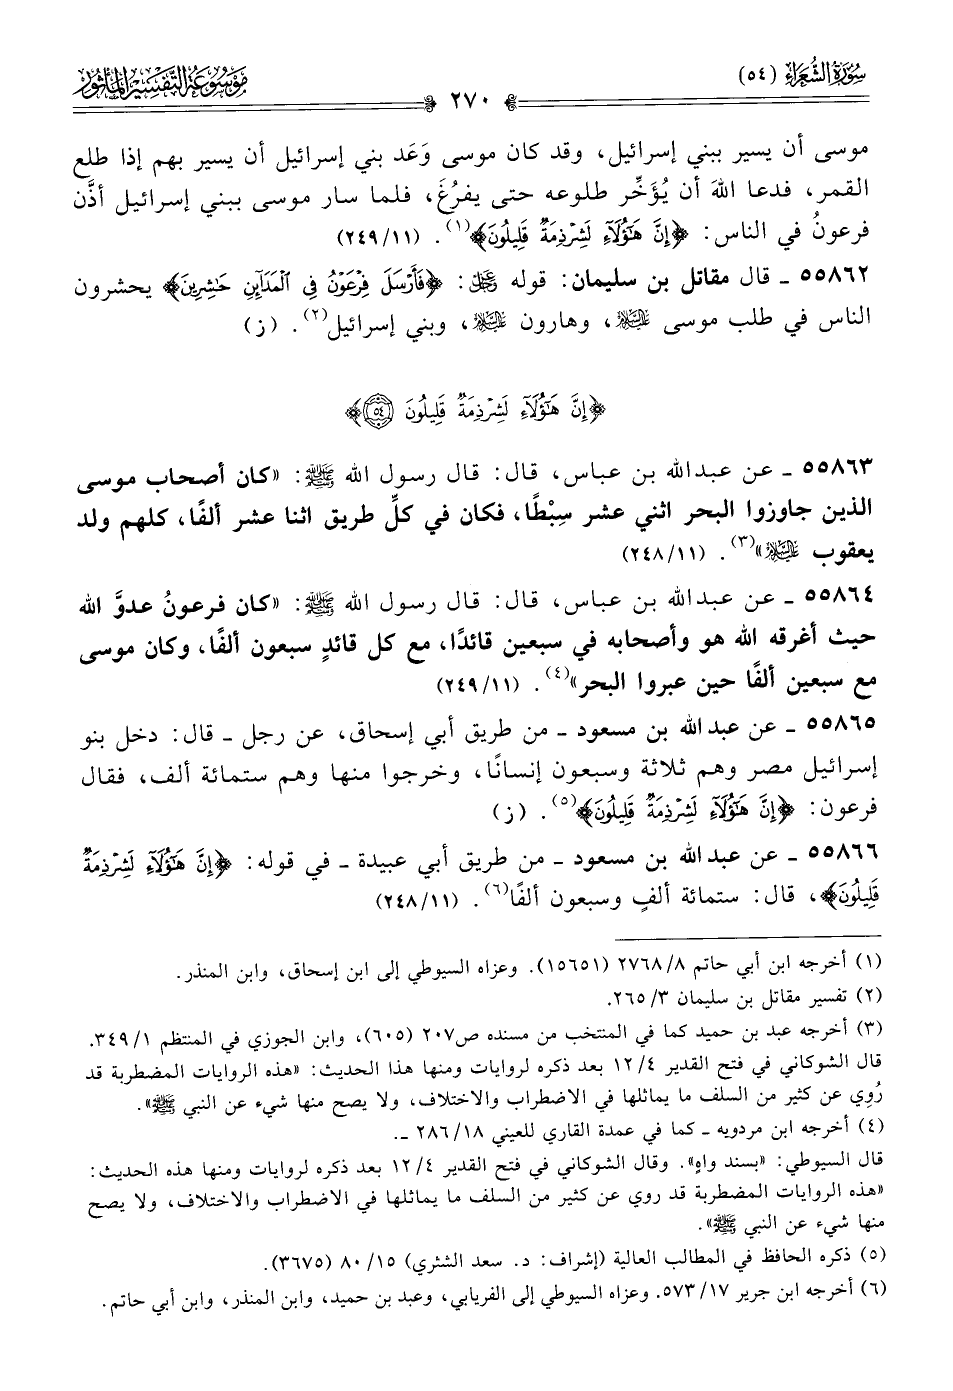 سورة الشعراء (٥٤)
٢٧٠
موسوعة التفسير المأثور
موسى أن يسير ببني إسرائيل، وقد كان موسى وَعَد بني إسرائيل أن يسير بهم إذا طلع
القمر، فدعا اللهَ أن يُؤَخِّر طلوعه حتى يفرُغَ، فلما سار موسى ببني إسرائيل أذَّن
فرعونُ في الناس: ﴿إِنَّ هَٰٓؤُلَآءِ لَشِرْذِمَةٌ قَلِيلُونَ﴾(١). (١١/ ٢٤٩)
٥٥٨٦٢ ـ قال مقاتل بن سليمان: قوله ﷿: ﴿فَأَرْسَلَ فِرْعَوْنُ فِى ٱلْمَدَآئِنِ حَٰشِرِينَ﴾ يحشرون
الناس في طلب موسى ﵇، وهارون ﵇، وبني إسرائيل(٢). (ز)
﴿إِنَّ هَٰٓؤُلَآءِ لَشِرْذِمَةٌ قَلِيلُونَ ٥٤﴾
٥٥٨٦٣ ـ عن عبدالله بن عباس، قال: قال رسول الله ﷺ: «كان أصحاب موسى
الذين جاوزوا البحر اثني عشر سِبْطًا، فكان في كلِّ طريق اثنا عشر ألفًا، كلهم ولد
يعقوب ﵇»(٣). (١١/ ٢٤٨)
٥٥٨٦٤ ـ عن عبدالله بن عباس، قال: قال رسول الله ﷺ: «كان فرعونُ عدوَّ الله
حيث أغرقه الله هو وأصحابه في سبعين قائدًا، مع كل قائدٍ سبعون ألفًا، وكان موسى
مع سبعين ألفًا حين عبروا البحر»(٤). (١١/ ٢٤٩)
٥٥٨٦٥ ـ عن عبدالله بن مسعود ـ من طريق أبي إسحاق، عن رجل ـ قال: دخل بنو
إسرائيل مصر وهم ثلاثة وسبعون إنسانًا، وخرجوا منها وهم ستمائة ألف، فقال
فرعون: ﴿إِنَّ هَٰٓؤُلَآءِ لَشِرْذِمَةٌ قَلِيلُونَ﴾(٥). (ز)
٥٥٨٦٦ ـ عن عبدالله بن مسعود ـ من طريق أبي عبيدة ـ في قوله: ﴿إِنَّ هَٰٓؤُلَآءِ لَشِرْذِمَةٌ
قَلِيلُونَ﴾، قال: ستمائة ألفٍ وسبعون ألفًا(٦). (١١/ ٢٤٨)
(١) أخرجه ابن أبي حاتم ٨/ ٢٧٦٨ (١٥٦٥١). وعزاه السيوطي إلى ابن إسحاق، وابن المنذر.
(٢) تفسير مقاتل بن سليمان ٣/ ٢٦٥.
(٣) أخرجه عبد بن حميد كما في المنتخب من مسنده ص٢٠٧ (٦٠٥)، وابن الجوزي في المنتظم ١/ ٣٤٩.
قال الشوكاني في فتح القدير ٤/ ١٢ بعد ذكره لروايات ومنها هذا الحديث: «هذه الروايات المضطربة قد
رُوِي عن كثير من السلف ما يماثلها في الاضطراب والاختلاف، ولا يصح منها شيء عن النبي ﷺ».
(٤) أخرجه ابن مردويه ـ كما في عمدة القاري للعيني ١٨/ ٢٨٦ ـ.
قال السيوطي: «بسند واهٍ». وقال الشوكاني في فتح القدير ٤/ ١٢ بعد ذكره لروايات ومنها هذه الحديث:
«هذه الروايات المضطربة قد روي عن كثير من السلف ما يماثلها في الاضطراب والاختلاف، ولا يصح
منها شيء عن النبي ﷺ».
(٥) ذكره الحافظ في المطالب العالية (إشراف: د. سعد الشثري) ١٥/ ٨٠ (٣٦٧٥).
(٦) أخرجه ابن جرير ١٧/ ٥٧٣. وعزاه السيوطي إلى الفريابي، وعبد بن حميد، وابن المنذر، وابن أبي حاتم.